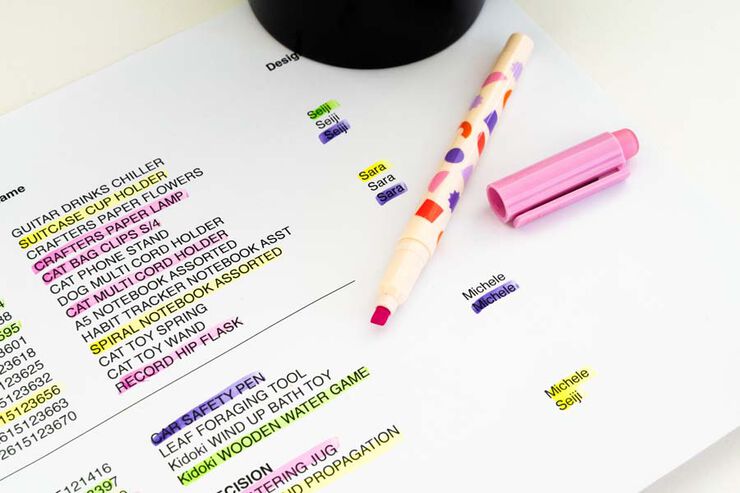 Desig
ame
Seiji
Seiji
Seiji
GUITAR DRINKS CHILLER
SUITCASE CUP HOLDER
CRAFTERS PAPER FLOWERS
CRAFTERS PAPER LAMP
CAT BAG CLIPS S/4
CAT PHONE STAND
DOG MULTI CORD HOLDER
CAT MULTI CORD HOLDER
A5 NOTEBOOK ASSORTED
HABIT TRACKER NOTEBOOK ASST
SPIRAL NOTEBOOK ASSORTED
CAT TOY SPRING
CAT TOY WAND
RECORD HIP FLASK
Sara
Sara
Sara
38
595
3601
23618
123625
5123632
15123656
615123663
2615123670
Michele
Michele
CAR SAFETY PEN
LEAF FORAGING TOOL
Kidoki WIND UP BATH TOY
Kidoki WOODEN WATER GAME
Michele
Seiji
5121416
2397
CISION
TERING JUG
D PROPAGATION